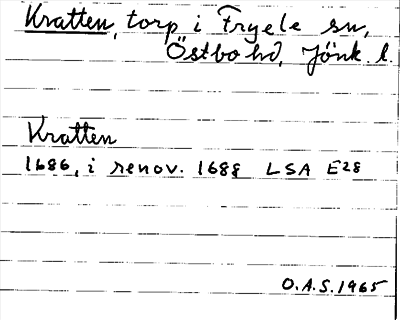 Kratten, torp i Fryele sn,
Östbo hd, Jönk. l.
Kratten
1686, i renov. 1688 LSA E28
O.A.S. 1965